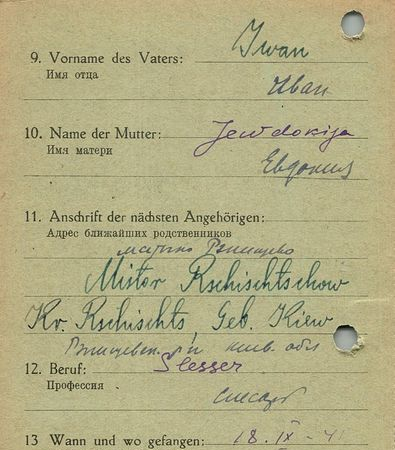 9. Vorname des Vaters: Iwan
Имя отца
Иван
10. Name der Mutter: Jewdokija
Имя матери
Евдокия
11. Anschrift der nächsten Angehörigen:
Адрес ближайших родственников
Ржищево
Mistor Rschischtschow
Kr. Rschischts, Geb. Kiew
р-н киев. обл
12. Beruf: Slesser
Профессия
слесарь
13 Wann und wo gefangen: 18. IX - 41